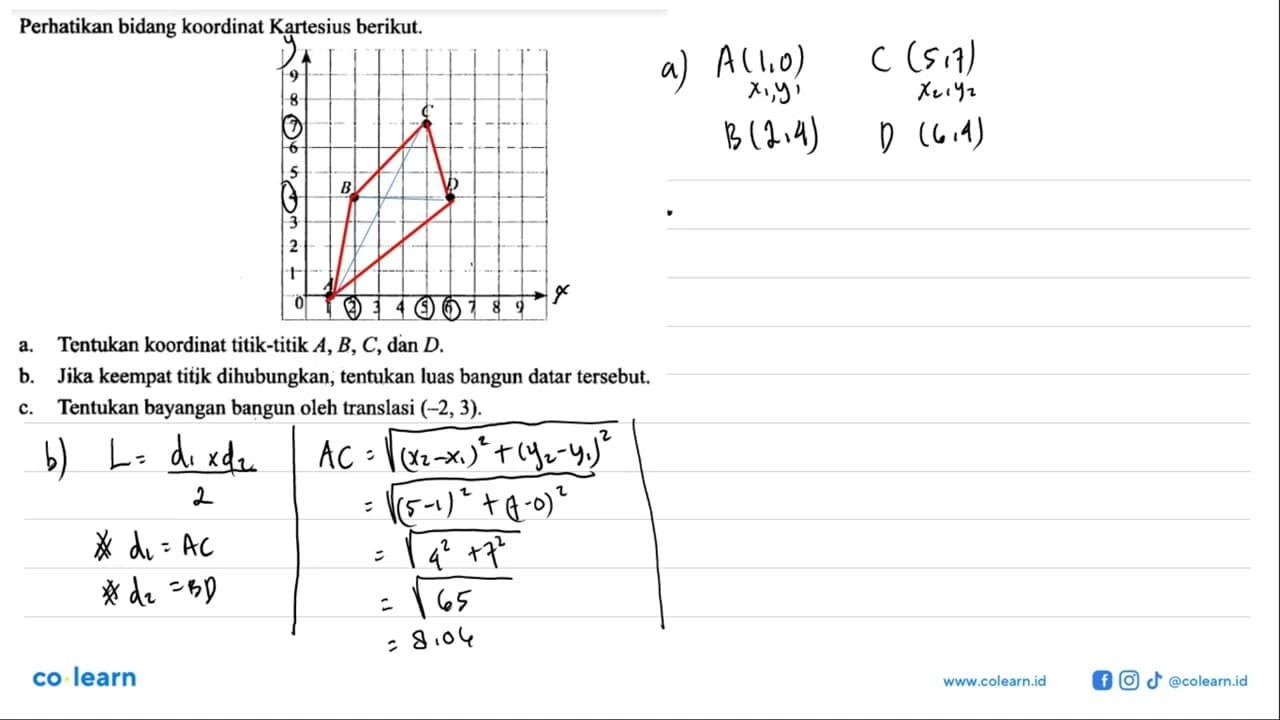 Perhatikan bidang koordinat Kartesius berikut.
y
9
8
7
6
5
4
3
2
1
0 1 2 3 4 5 6 7 8 9 x
A
B
C
D
a) A(1,0) C(5,7)
x1,y1 x2,y2
B(2,4) D(6,4)
a. Tentukan koordinat titik-titik A, B, C, dan D.
b. Jika keempat titik dihubungkan, tentukan luas bangun datar tersebut.
c. Tentukan bayangan bangun oleh translasi (–2, 3).
b) L = d1 x d2
2
* d1 = AC
* d2 = BD
AC = √(x2-x1)² + (y2-y1)²
= √(5-1)² + (7-0)²
= √4² + 7²
= √65
= 8,06
co learn
www.colearn.id
@colearn.id